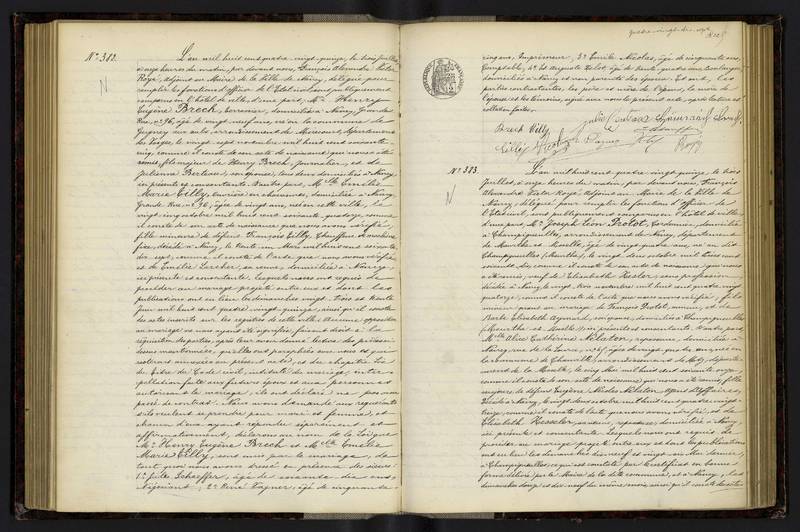 N° 382. L'an mil huit cent quatre-vingt-quinze, le trois Juillet
à onze heures du matin, par devant nous, François Alexandre Victor
Royé, Adjoint au Maire de la Ville de Nancy, délégué pour
remplir les fonctions d'officier de l'Etat civil, sont publiquement
comparus en l'hôtel de ville, d'une part, Mr Henry
Eugène Brech, domicilié à Nancy, Grande
Rue, n° 96, âgé de vingt-neuf ans, né en la commune de
arrondissement de Mirecourt, département
des Vosges, le vingt-sept novembre mil huit cent soixante
cinq, comme il conste de son acte de naissance qui nous a été
remis, fils mineur de Henry Brech, journalier, et de
Julienne Berteaux, son épouse, tous deux domiciliés à Nancy,
ici présents et consentants. D'autre part, Melle Emélie
Marie Cilly, ouvrière en chaussures, domiciliée à Nancy,
Grande Rue, n° 96, âgée de vingt ans, née en cette ville, le
vingt-cinq octobre mil huit cent soixante-quatorze, comme
il conste de son acte de naissance que nous avons vérifié,
fille mineure de défunt François Cilly, Chauffeur de machine
fixe, décédé à Nancy, le trente un Mars mil huit cent soixante
dix-sept, comme il conste de l'acte que nous avons vérifié
et de Emélie Larcher, sa veuve, domiciliée à Nancy,
ici présente et consentante. Lesquels nous ont requis de
procéder au mariage projeté entre eux et dont les
publications ont eu lieu les dimanches vingt-trois et trente
Juin mil huit cent quatre-vingt-quinze, ainsi qu'il conste
des actes inscrits sur les registres de cette ville. Aucune opposition
au mariage ne nous ayant été signifiée, faisant droit à la
réquisition des parties, après leur avoir donné lecture des pièces ci-
dessus mentionnées, qu'elles ont paraphées avec nous et qui
resteront annexées au présent acte, et du chapitre VI
du titre du Code civil, intitulé du mariage, inter-
pellation faite aux futurs époux et aux personnes
autorisant le mariage, ils ont déclaré ne pas avoir
passé de contrat. Nous avons demandé aux requérants
s'ils veulent se prendre pour mari et femme, et
chacun d'eux ayant répondu séparément et
affirmativement, déclarons au nom de la loi que
Mr Henry Eugène Brech et Melle Emélie
Marie Cilly, sont unis par le mariage, de
tout quoi nous avons dressé en présence des sieurs:
1° Jules Schaeffer, âgé de soixante-dix ans,
Négociant, 2° René Pagner, âgé de cinquante-
cinq ans, Imprimeur, 3° Emile Nicolas, âgé de cinquante ans,
Comptable, 4° et Auguste Velot, âgé de trente-quatre ans, Boulanger,
domiciliés à Nancy et non parents des époux. Et ont, les
parties contractantes, les père et mère de l'époux, la mère de
l'épouse et les témoins, signé avec nous le présent acte, après lecture et
collation faites.
Brech Cilly
Cilly Nicolas Pagner
Royé
N° 383. L'an mil huit cent quatre-vingt-quinze, le trois
Juillet à onze heures du matin, par devant nous, François
Alexandre Victor Royé, Adjoint au Maire de la Ville de
Nancy, délégué pour remplir les fonctions d'officier de
l'Etat civil, sont publiquement comparus en l'hôtel de ville
d'une part, Mr Joseph Léon Protot, Cordonnier, domicilié
à Champigneulles, arrondissement de Nancy, département
de Meurthe et Moselle, âgé de vingt-quatre ans, né au dit
Champigneulles (Meurthe), le vingt-deux octobre mil huit cent
soixante-dix, comme il conste de son acte de naissance qui nous
a été remis, veuf de Elisabeth Hessler, sans profession,
décédée à Nancy, le vingt-trois novembre mil huit cent quatre-vingt
quatorze, comme il conste de l'acte que nous avons vérifié, fils
de François Protot, et de
Barbe Elisabeth Aymard, son épouse, domiciliés à Champigneulles
(Meurthe et Moselle), ici présents et consentants. D'autre part,
Melle Alice Catherine Nélaton, repasseuse, domiciliée à
Nancy, rue de la âgée de vingt-quatre ans, née en
la commune de arrondissement de Metz, départe-
ment de la Moselle, le cinq Mai mil huit cent soixante-onze,
comme il conste de son acte de naissance qui nous a été remis, fille
majeure de défunt Eugène Nicolas Nélaton, Agent d'Affaires,
décédé à Nancy, le vingt-deux octobre mil huit cent quatre-vingt-
treize, comme il conste de l'acte que nous avons vérifié, et de
Elisabeth Hessler, sa veuve, repasseuse, domiciliée à Nancy,
ici présente et consentante. Lesquels nous ont requis de
procéder au mariage projeté entre eux et dont les publications
ont eu lieu les dimanches dix-neuf et vingt-six Mai dernier,
à Champigneulles, ce qui est constaté par certificat en bonne
forme délivré par le Maire de la dite commune, et à Nancy, les
dimanches douze et dix-neuf du même mois, ainsi qu'il conste des actes